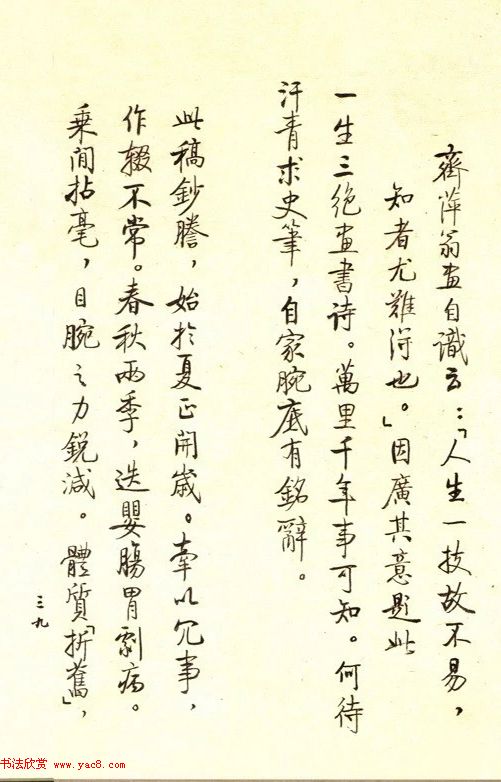 齊萍翁畫自識云：「人生一技故不易，
知者尤難得也。」因廣其意題此
一生三絶畫書诗。萬里千年事可知。何待
汗青求史筆，自家腕底有銘辭。
此稿鈔謄，始於夏正開歲。牽以冗事，
作辍不常。春秋兩季，迭嬰腸胃劇病。
乗间拈毫，目腕之力鋭減。體質「折舊」，
三九
书法欣赏 www.yac8.com